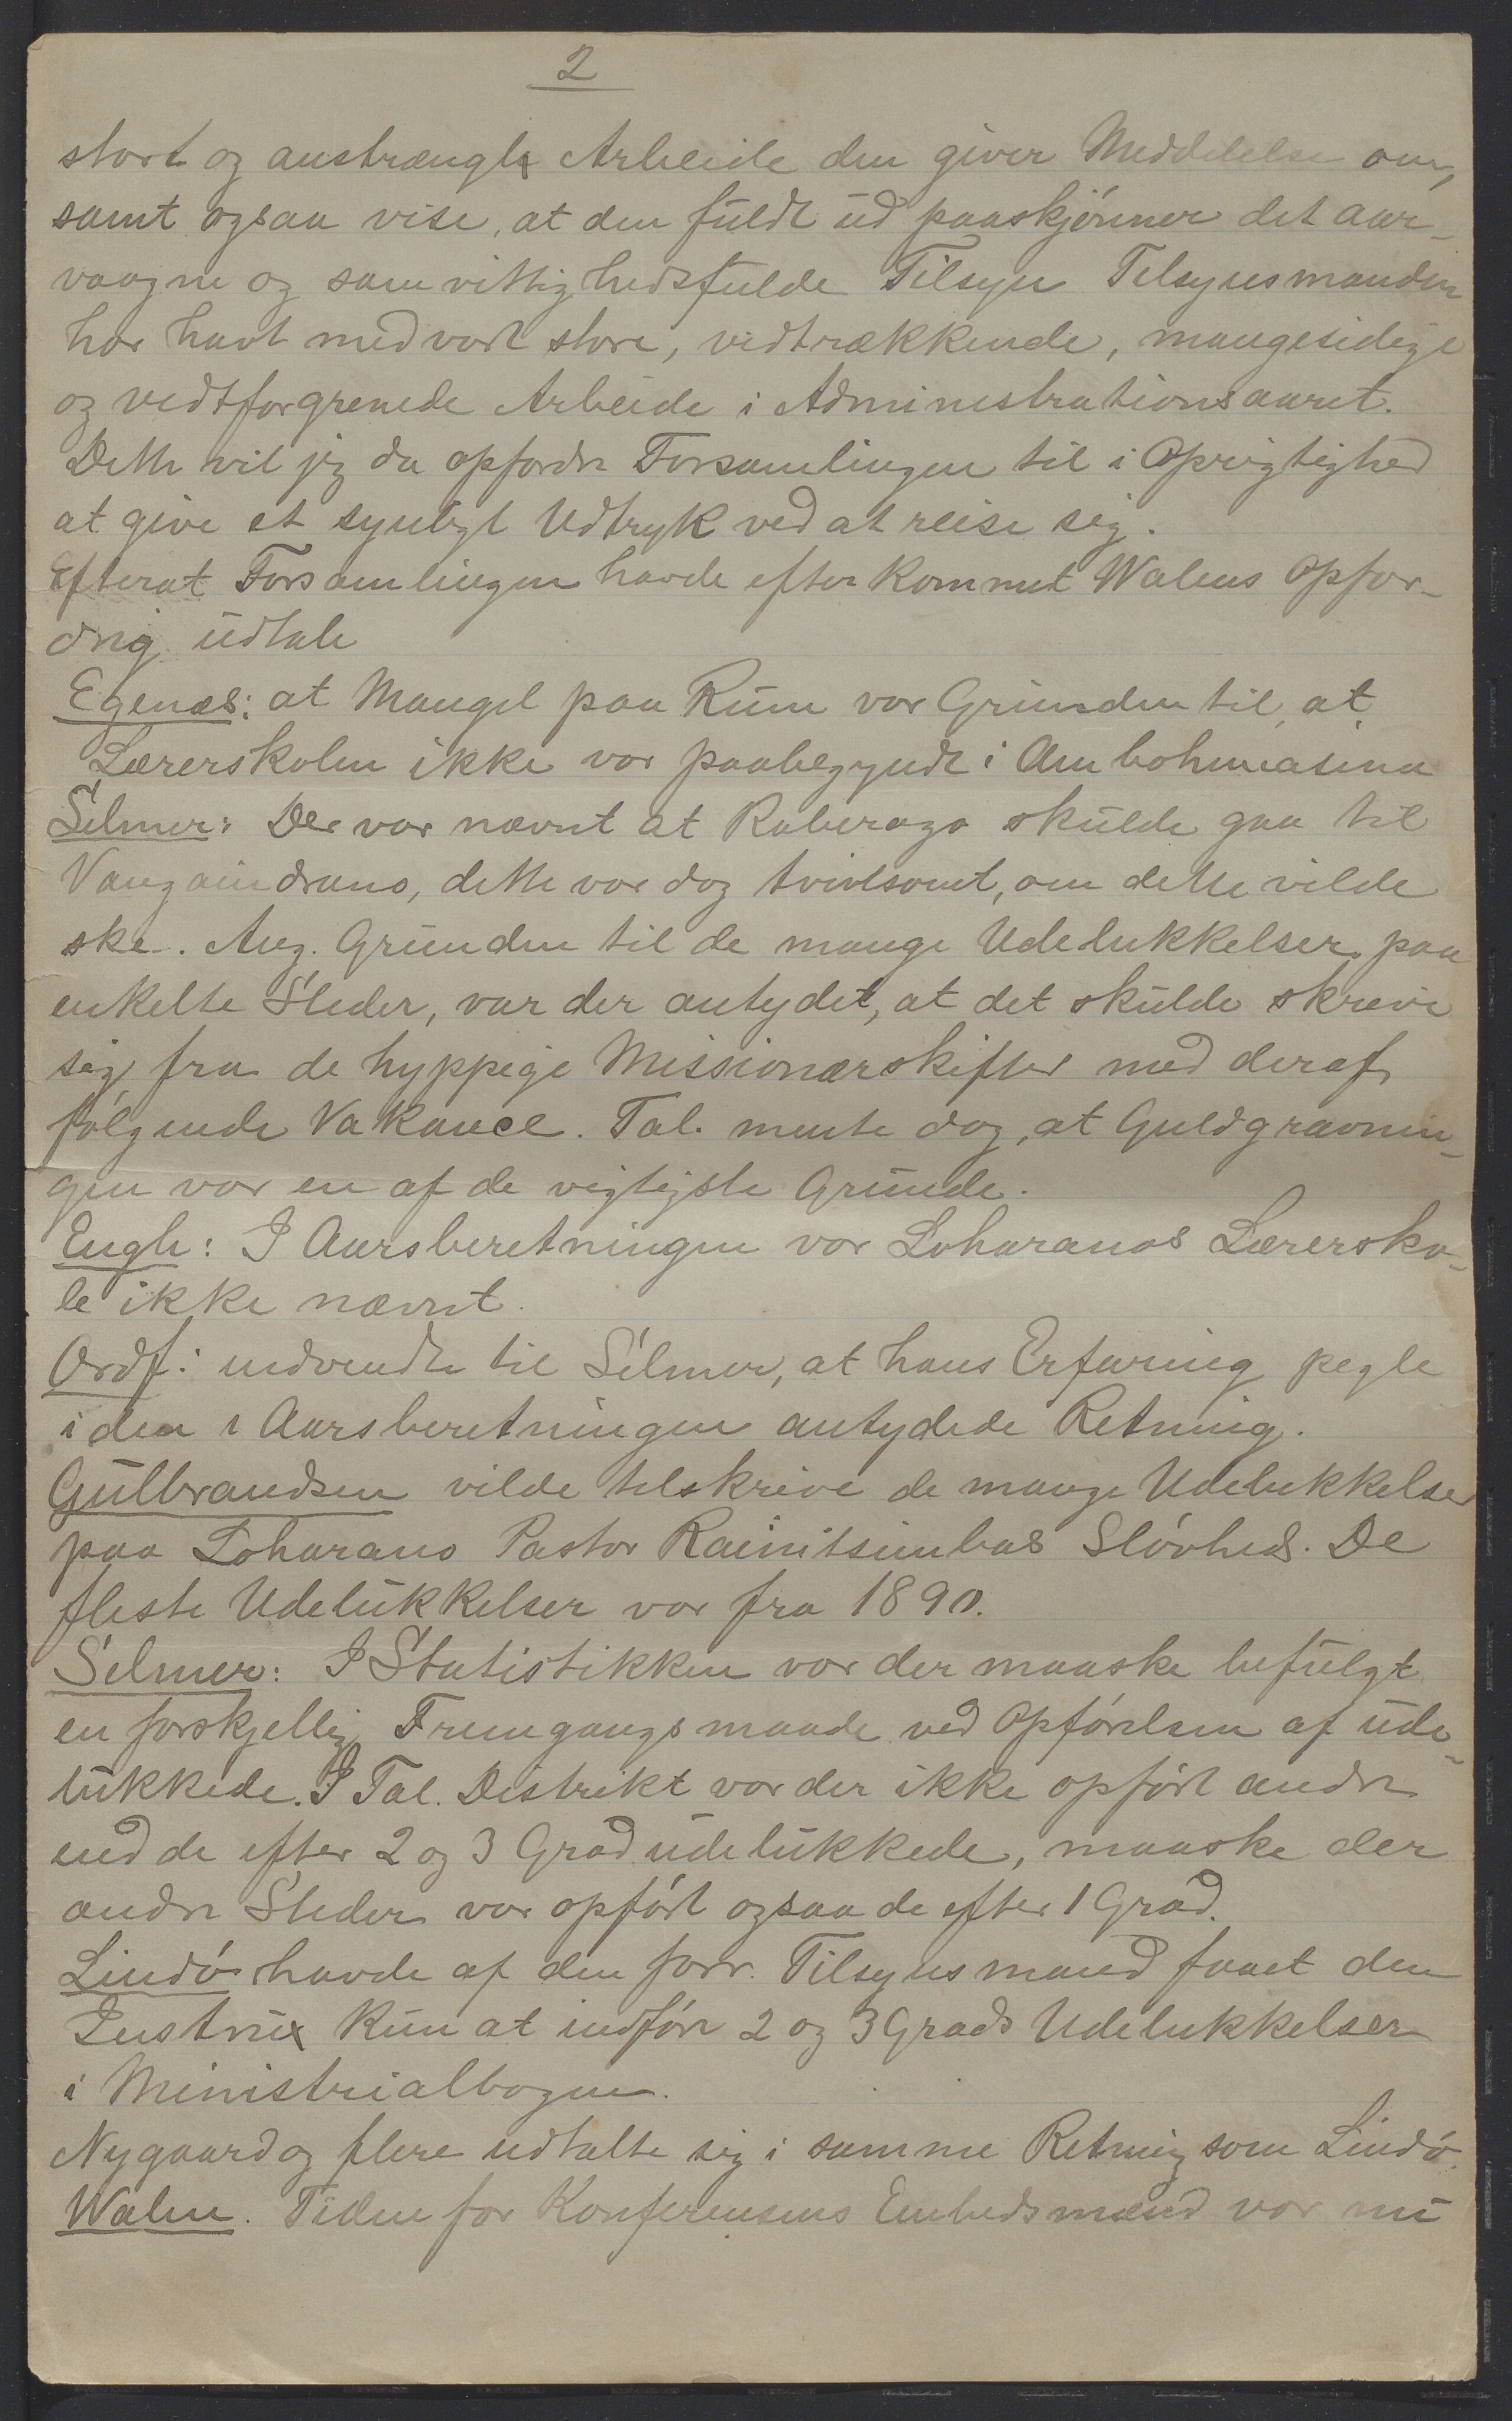 2
stort og anstrængte Arbeide den giver Meddelelse om,
samt ogsaa vise, at den fuldt ud paaskjönner det aar-
vaagne og samvittighedsfulde Tilsyn Tilsynsmanden
har havt med vort store, vidtrækkende, mangesidige
og vidtforgrenede Arbeide i Administrationsaaret.
Dette vil jeg da opfordre Forsamlingen til i Oprigtighed
at give et synligt Udtryk ved at reise sig.
Efterat Forsamlingen havde efterkommet Walens Opfor-
drig udtale
Egenæs: at Mangel paa Rum var Grunden til, at
Lærerskolen ikke var paabegyndt i Ambohimasina
Selmer: Der var nævnt at Rabezago skulde gaa til
Vangaindrano, dette var dog tvivlsomt, om dette vilde
ske. Ang. Grunden til de mange Udelukkelser paa
enkelte Steder, var der antydet, at det skulde skrive
sig fra de hyppige Missionærskifter med deraf
fölgende Vakance. Tal. mente dog, at Guldgravnin-
gen var en af de vigtigste Grunde.
Engh: I Aarsberetningen var Loharanos Lærersko-
le ikke nævnt.
Ordf: indvendte til Selmer, at hans Erfaring pegte
i den i Aarsberetningen antydede Retning.
Gulbrandsen vilde tilskrive de mange Udelukkelser
paa Loharano Pastor Rainitsimbas Slövhed. De
fleste Udelukkelser var fra 1890.
Selmer: I Statistikken var der maaske befulgt
en forskjellig Fremgangsmaade ved Opförelsen af ude-
lukkede. I Tal. Distrikt var der ikke opfört andre
end de efter 2 og 3 Grad udelukkede, maaske der
andre Steder var opfört ogsaa de efter 1 Grad.
Lindö havde af den forr. Tilsynsmand faaet den
Instrux kun at indföre 2 og 3 Grads Udelukkelser
i Ministrialbogen.
Nygaard og flere udtalte sig i samme Retning som Lindö.
Walen. Tiden for Konferensens Embedsmænd var nu